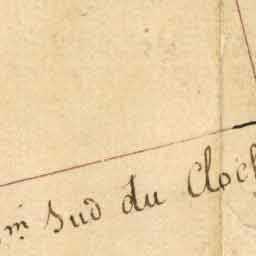 m Sud du Cloch